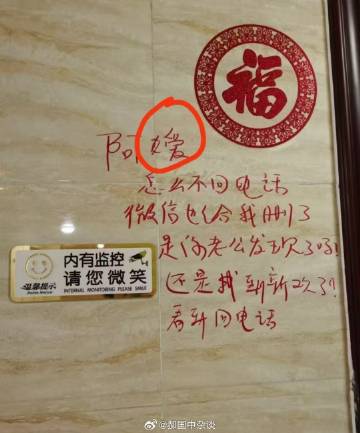 福
阿嫒
怎么不回电话
微信也给我删了
是你老公发现了吗?
还是找到新欢了?
看到回电话
温馨提示
内有监控
请您微笑
INTERNAL MONITORING PLEASE SMILE
@郝国中杂谈